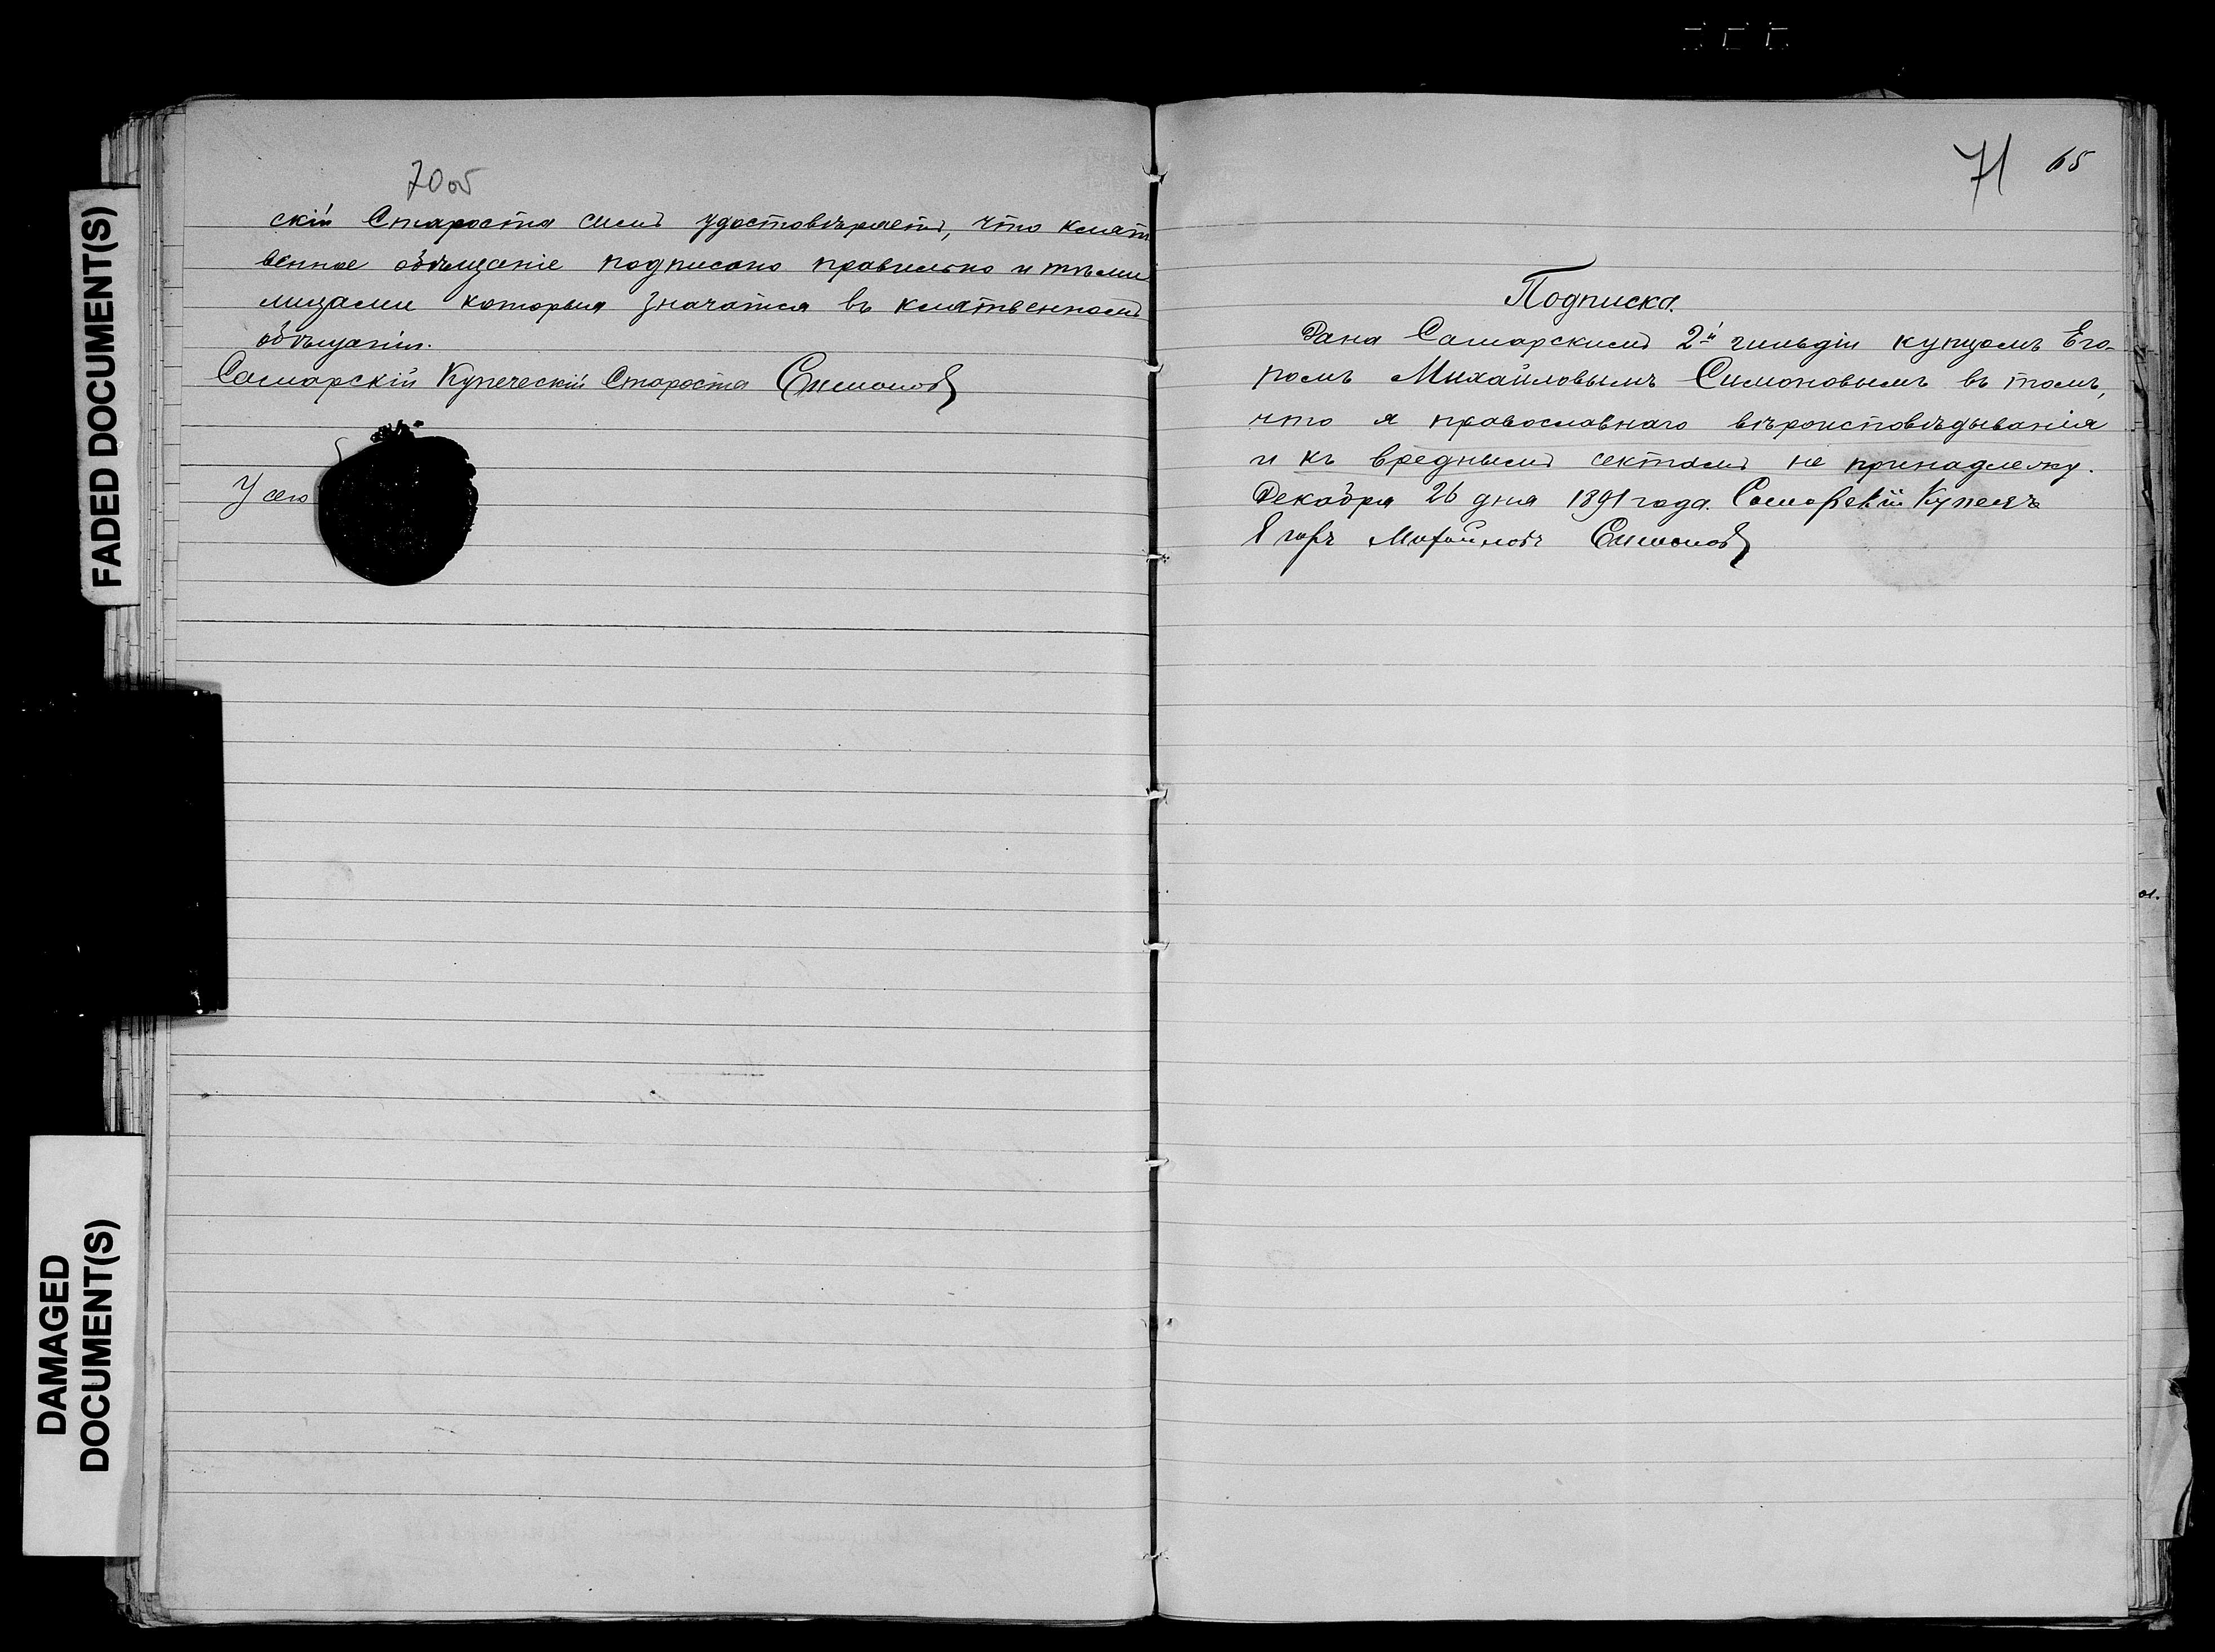 70об
скій Староста симъ удостовѣряетъ, что клят
венное обѣщаніе подписано правильно и тѣми
лицами которыя значатся въ клятвенномъ
обѣщаніи.
Самарскій Купеческій Староста Симоновъ
У сего
71 65
Подписка.
Дана Самарскимъ 2й гильдіи купцомъ Его-
ромъ Михайловымъ Симоновымъ въ томъ,
что я православнаго вѣроисповѣдыванія
и къ вреднымъ сектамъ не принадлежу.
Декабря 26 дня 1891 года. Самарскій Купецъ
Егоръ Михайловъ Симоновъ
FADED DOCUMENT(S)
DAMAGED
DOCUMENT(S)